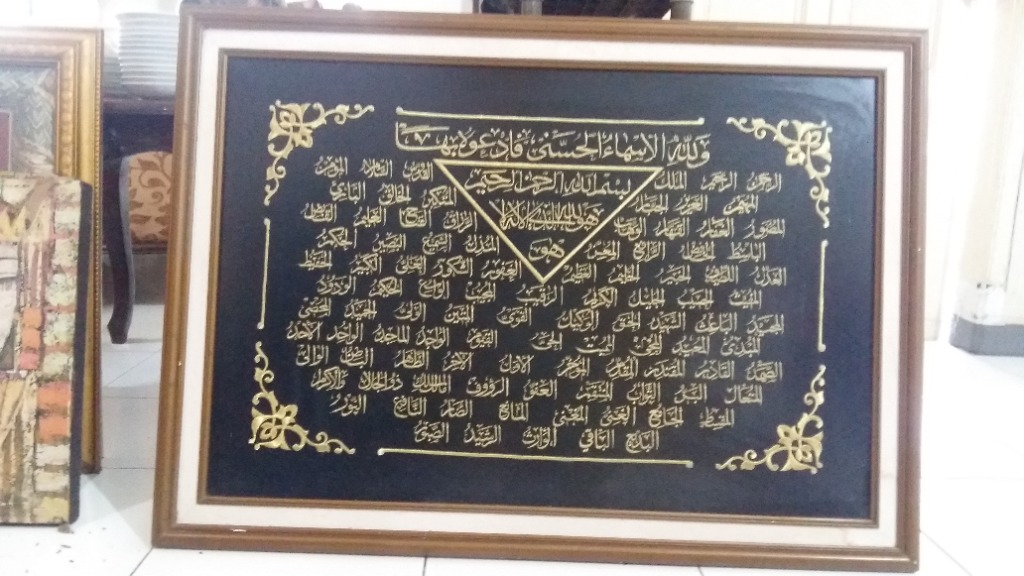 ولله الاسماء الحسنى فادعوه بها
بسم الله الرحمن الرحيم
هو الله الذي لا اله الا
هو
الرحمن الرحيم الملك القدوس السلام المؤمن
المهيمن العزيز الجبار المتكبر الخالق البارئ
المصور الغفار القهار الوهاب الرزاق الفتاح العليم القابض
الباسط الخافض الرافع المعز المذل السميع البصير الحكم
العدل اللطيف الخبير الحليم العظيم الغفور الشكور العلي الكبير الحفيظ
المقيت الحسيب الجليل الكريم الرقيب المجيب الواسع الحكيم الودود
المجيد الباعث الشهيد الحق الوكيل القوي المتين الولي الحميد المحصي
المبدئ المعيد المحيي المميت الحي القيوم الواجد الماجد الواحد الاحد
الصمد القادر المقتدر المقدم المؤخر الاول الاخر الظاهر الباطن الوالي
المتعال البر التواب المنتقم العفو الرؤوف مالك الملك ذو الجلال والاكرام
المقسط الجامع الغني المغني المانع الضار النافع النور
البديع الباقي الوارث الرشيد الصبور